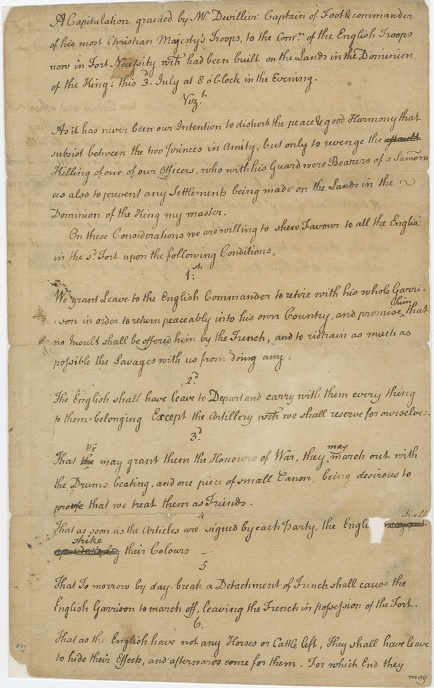 A Capitulation granted by Mr. Devillier Captain of Foot & commander
of his most Christian Majesty's Troops, to the Comr. of the English Troops
now in Fort Necessity wch. had been built on the Lands in the Dominion
of the King: this 3. July at 8 o'Clock in the Evening.
Vizt.
As it has never been our Intention to disturb the peace & good Harmony that
subsist between the two princes in Amity, but only to revenge the
Killing of one of our Officers, who with his Guard were Bearers of a Sumon
as also to prevent any Settlements being made on the Lands in the
Dominion of the King my master.
On these Considerations we are willing to shew Favour to all the English
in the sd. Fort upon the following Conditions,
1st.
We grant Leave to the English Commander to retire with his whole Garri-
son in order to return peaceably into his own Country, and promise him that
no Insult shall be offered him by the French, and to restrain as much as
possible the Savages with us from doing any.
2d.
The English shall have leave to Depart and carry with them every thing
to them belonging Except the Artillery wch. we shall reserve for ourselves.
3d.
That We may grant them the Honours of War, they may march out with
the Drums beating, and one piece of small Canon, being desirous to
prove that we treat them as Friends.
4
That as soon as the Articles are signed by each Party, the English shall
strike their Colours
5
That To morrow by day-break a Detachment of French shall cause the
English Garrison to march off, leaving the French in possession of the Fort.
6.
That as the English have not any Horses or Cattle left, They shall have leave
to hide their Effects, and afterwards come for them. For which End they
may